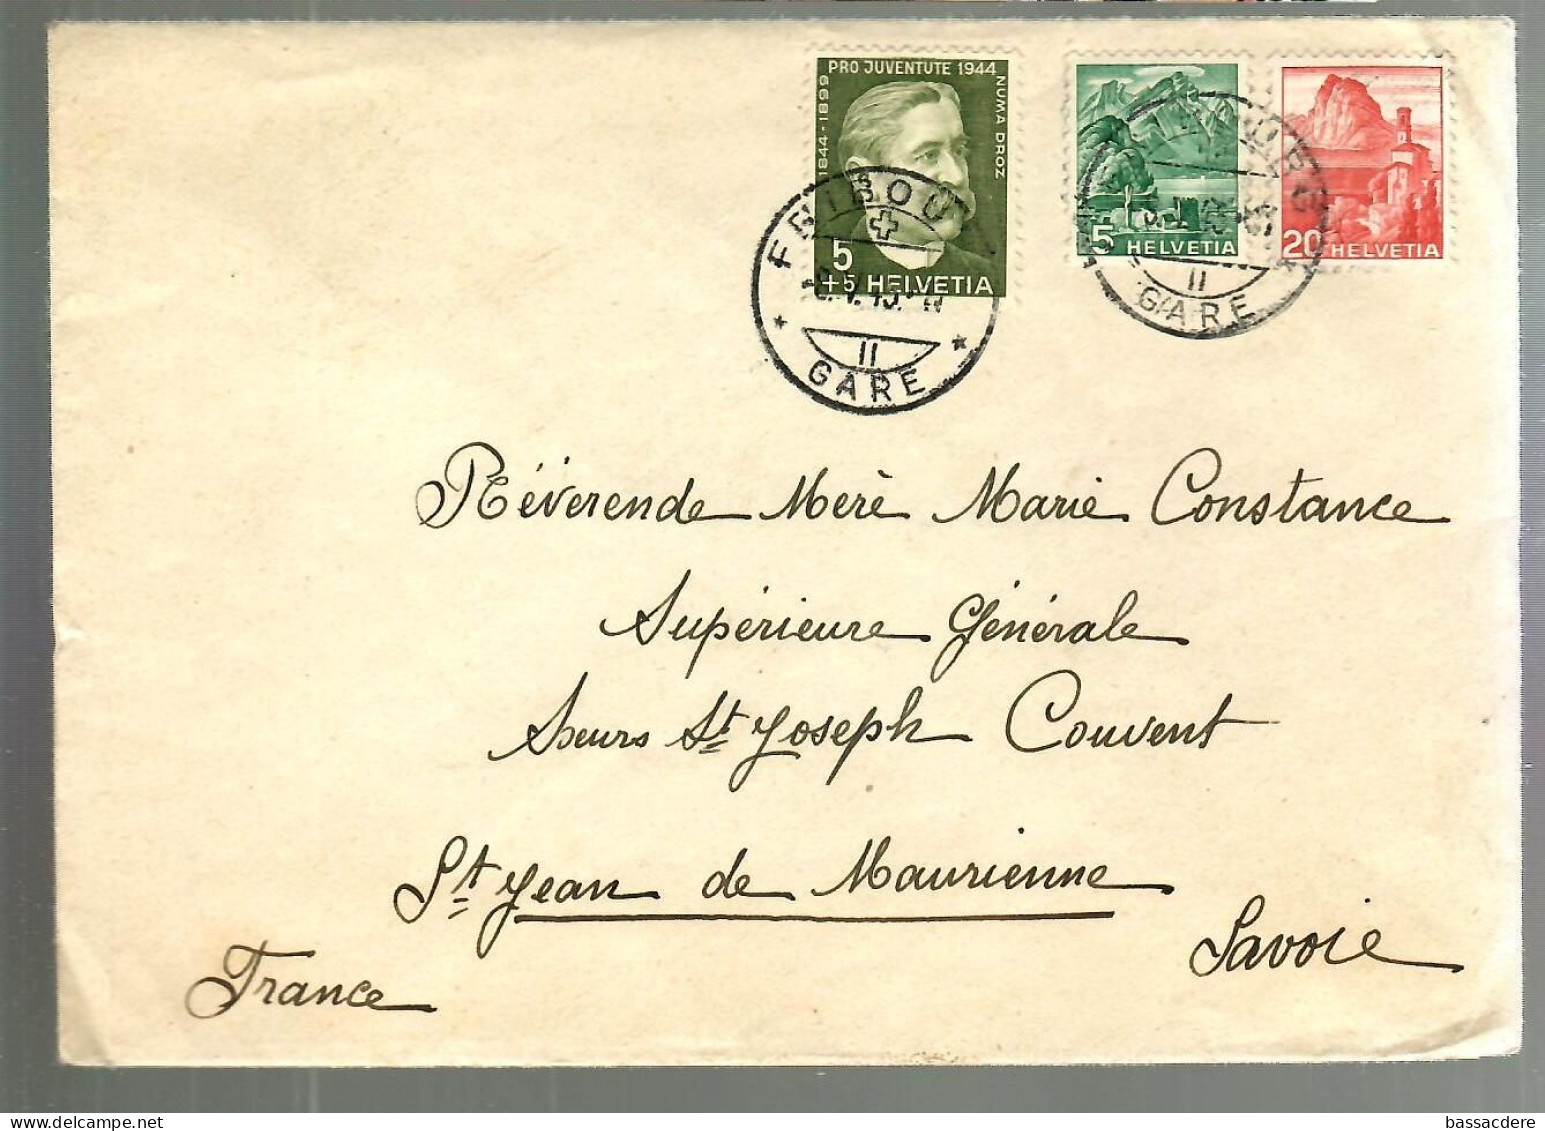 PRO JUVENTUTE 1944
1844-1899
NUMA DROZ
5
+5 HELVETIA
5 HELVETIA
20 HELVETIA
FRIBOU
II
GARE
II
GARE
Révérende Merè Marie Constance
Supérieure Générale
Soeurs St Joseph Couvent
St Jean de Maurienne
Savoie
France
bassacdere